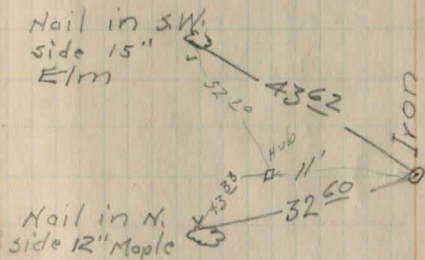 Nail in S.W.
side 15"
Elm
43 62
52 20
Iron
Hub
11'
43 33
32 60
Nail in N.
side 12" Maple